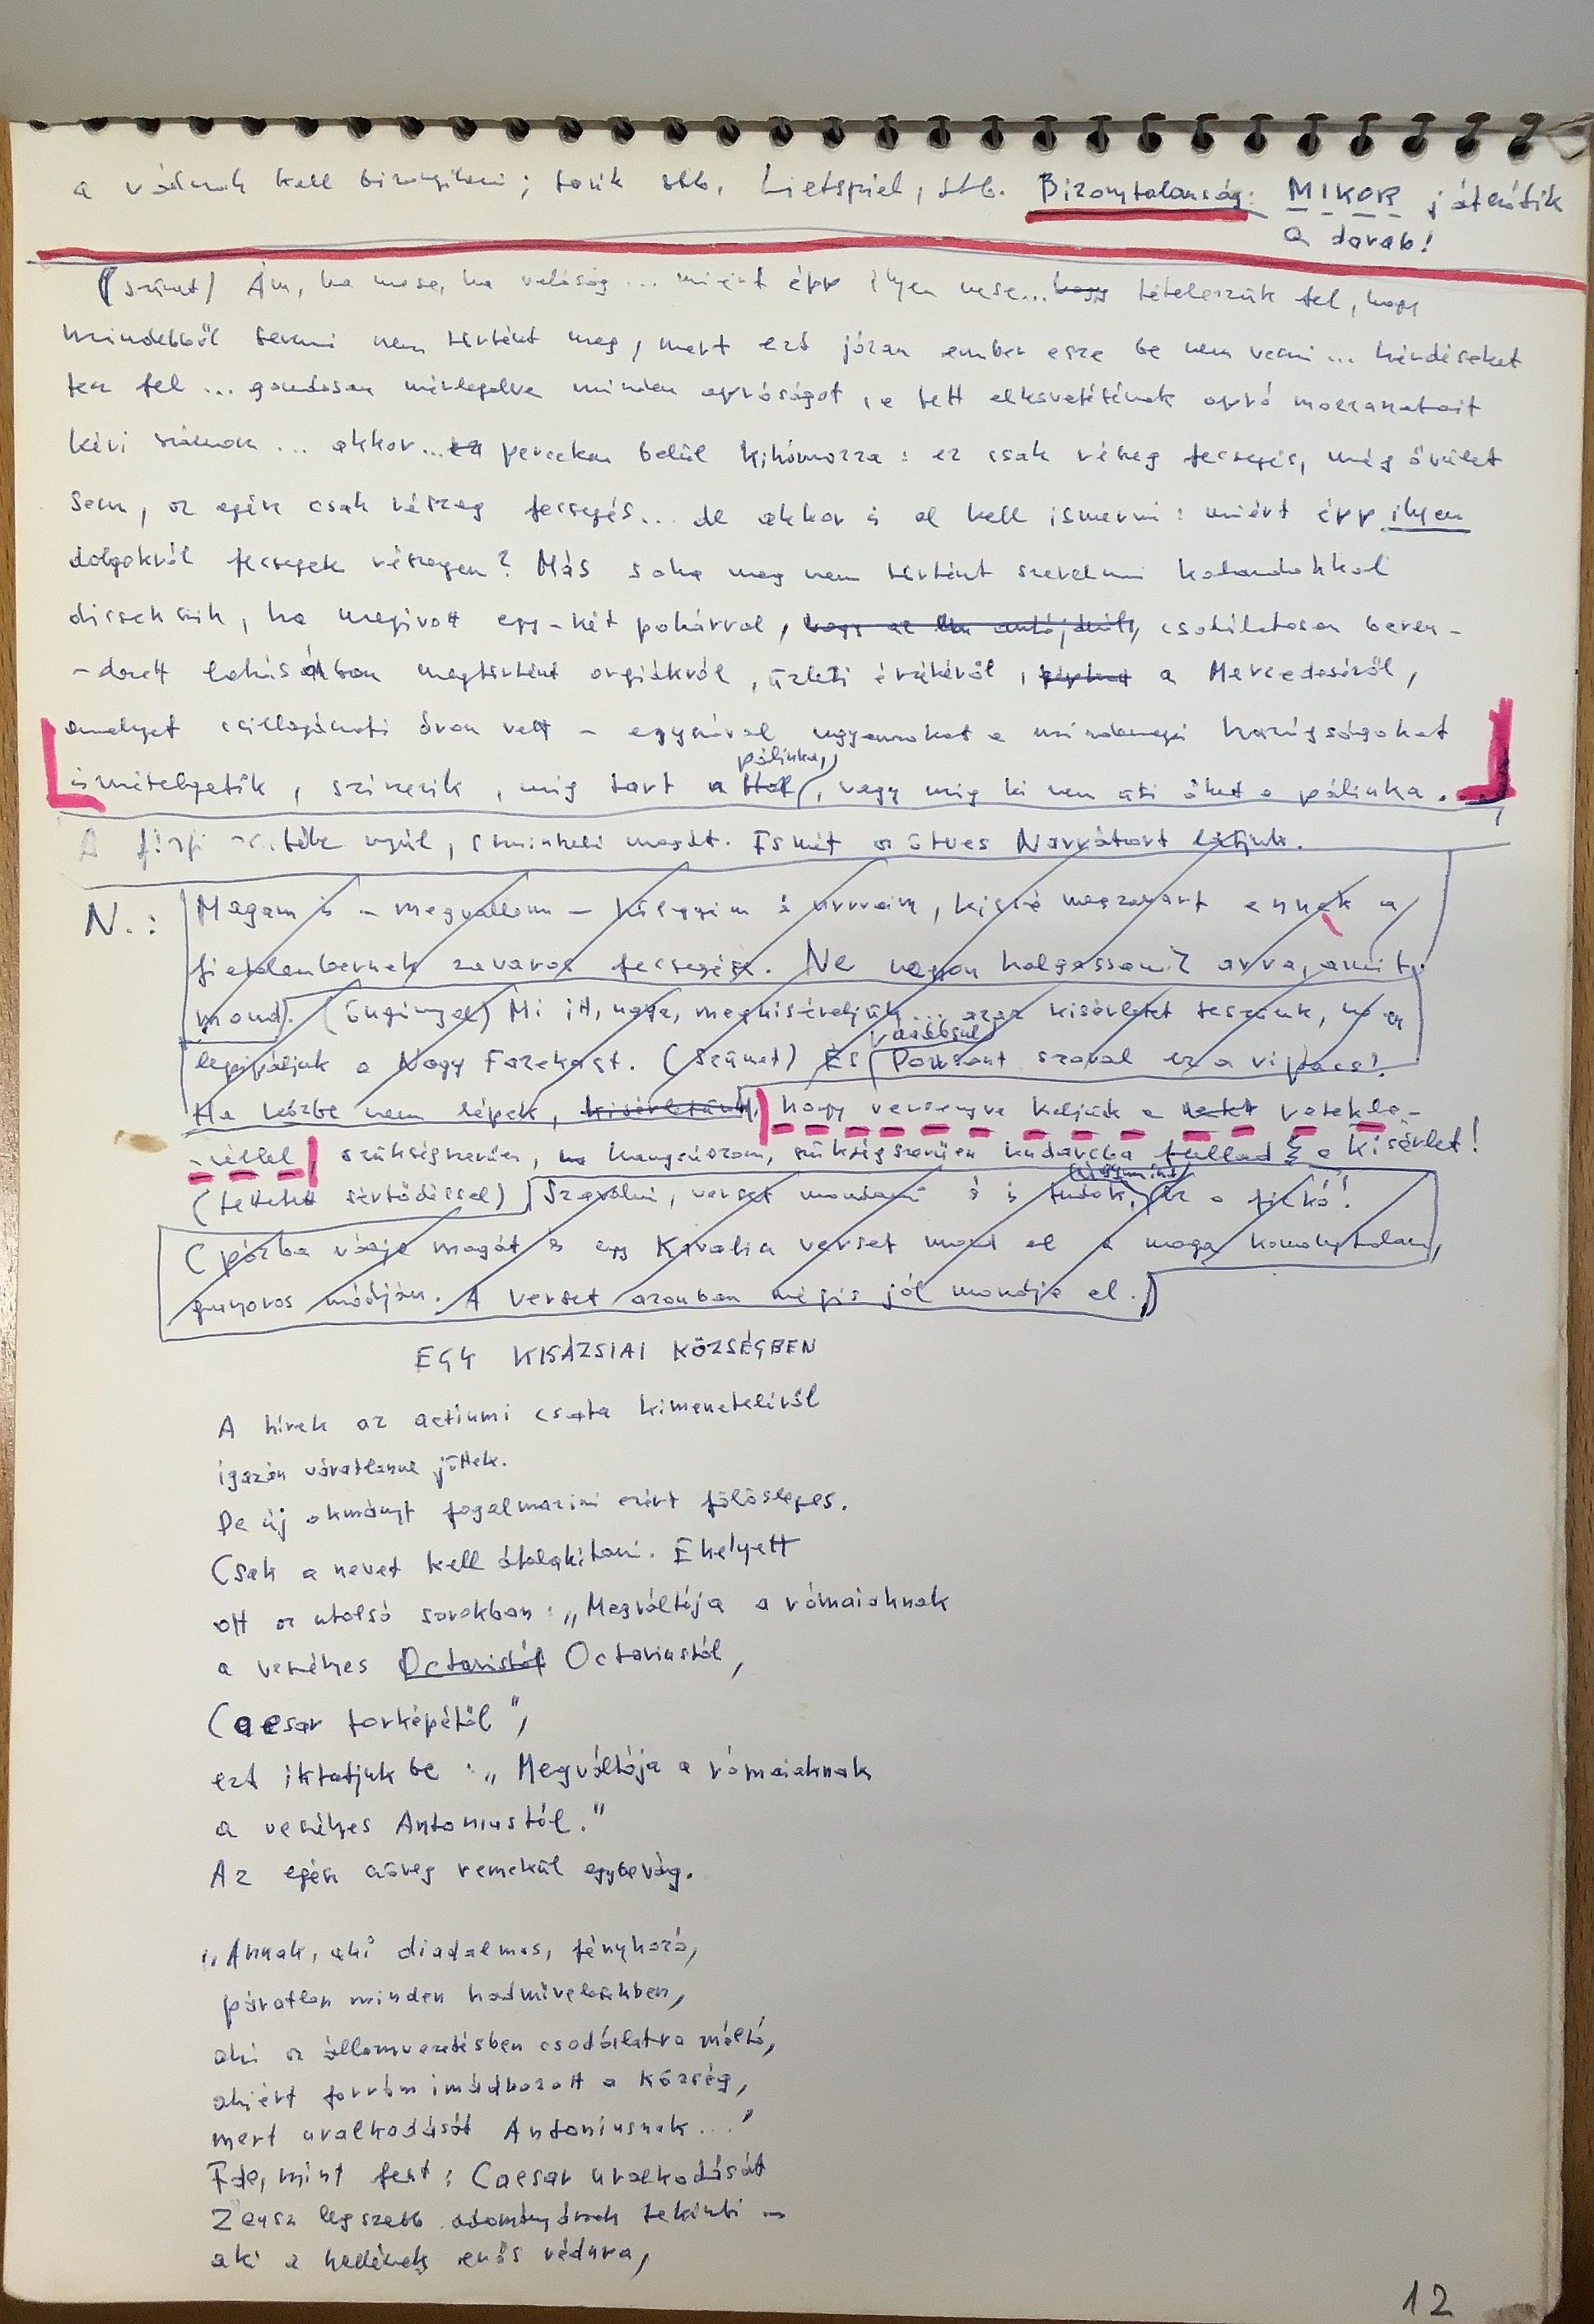 a vádnak kell bizonyítani; tanúk stb. Lietspiel, stb. Bizonytalanság: MIKOR játszódik
a darab!
(szünet) Ám, ha mese, ha valóság... miért épp ilyen mese... hogy tételezzük fel, hogy
mindebből semmi nem történt meg, mert ezt józan ember esze be nem veszi... kérdéseket
tesz fel... gondosan mérlegelve minden apróságot, a tett elkövetésének apró mozzanatait
kéri számon... akkor... ez perceken belül kihámozza: ez csak részeg fecsegés, még őrület
sem, az egész csak részeg fecsegés... de akkor is el kell ismerni: miért épp ilyen
dolgokról fecsegek részegen? Más soha meg nem történt szerelmi kalandokkal
dicsekszik, ha megivott egy-két pohárral, csodálatosan beren-
-dezett lakásában megtörtént orgiákról, üzleti érzékéről, a Mercedeséről,
amelyet csillagászati áron vett - egyszóval ugyanazokat a mindennapi hazugságokat
ismételgetik, színezik, míg tart a pálinka, vagy míg ki nem üti őket a pálinka.
A férfi nyúl, sminkeli magát. Ismét az ötves Narrátort látjuk.
N.: Magam is - megvallom - hölgyeim s uraim, kissé megzavart ennek a
fiatalembernek zavaros fecsegése. Ne nagyon hallgassanak arra, amit
mond. (Gúnyosan) Mi itt, ugye, megkíséreljük... azaz kísérletet teszünk, hogy
lepipáljuk a Nagy Fazekast. (Szünet) És ráadásul Ponsont szaval ez a vipacs!
Ha közbe nem lépek, kísérletünk, hogy versenyre keljünk a vetekle-
-réttel, szükségszerűen, hangsúlyozom, szükségszerűen kudarcba fullad a kísérlet!
(tettetett sértődéssel) Szavalni, verset mondani én is tudok, úgymint ez a fickó!
(pózba vágja magát és egy Kavafisz verset mond el a maga komolytalan,
gunyoros módján. A verset azonban mégis jól mondja el.)
EGY KISÁZSIAI KÖZSÉGBEN
A hírek az actiumi csata kimeneteléről
igazán váratlanul jöttek.
De új okmányt fogalmazni ezért fölösleges.
Csak a nevet kell átalakítani. Ehelyett
ott az utolsó sorokban: „Megváltója a rómaiaknak
a veszélyes Octavistól Octaviustól,
Caesar torképétől",
ezt iktatjuk be: „Megváltója a rómaiaknak
a veszélyes Antoniustól."
Az egész szöveg remekül egybevág.
„Annak, aki diadalmas, fényhozó,
páratlan minden hadműveletekben,
aki az államvezetésben csodálatra méltó,
akiért forrón imádkozott a község,
mert uralkodását Antoniusnak..."
Ide, mint fent: Caesar uralkodását
Zeusz legszebb adományának tekinti -
aki a hellének erős védura,
12